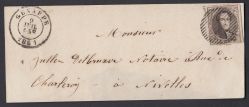 GENAPPE
9
1851
Monsieur
Jules Delbruyere Notaire à Rue de
Charleroy — à Nivelles